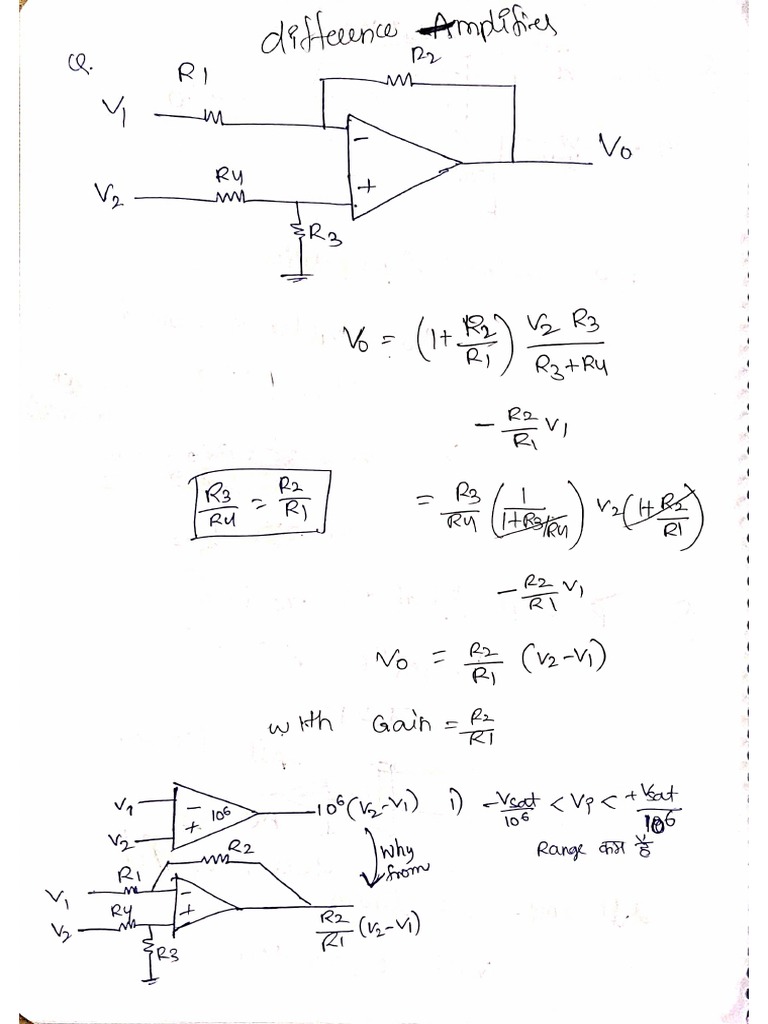 difference Amplifier
Q.
R1
R2
V1
V2
R4
R3
−
+
Vo
Vo = (1+R2/R1) V2 R3/(R3+R4)
− R2/R1 V1
R3/R4 = R2/R1
= R3/R4 (1/(1+R3/R4)) V2 (1+R2/R1)
− R2/R1 V1
Vo = R2/R1 (V2-V1)
with Gain = R2/R1
V1
V2
−
+
10⁶
10⁶(V2-V1)
1) -Vsat/10⁶ < Vp < +Vsat/10⁶
Range कम
why
from
R1
R2
V1
R4
V2
−
+
R3
R2/R1 (V2-V1)